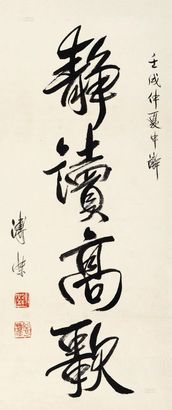 壬戌仲夏中浣
靜讀高歌
溥傑